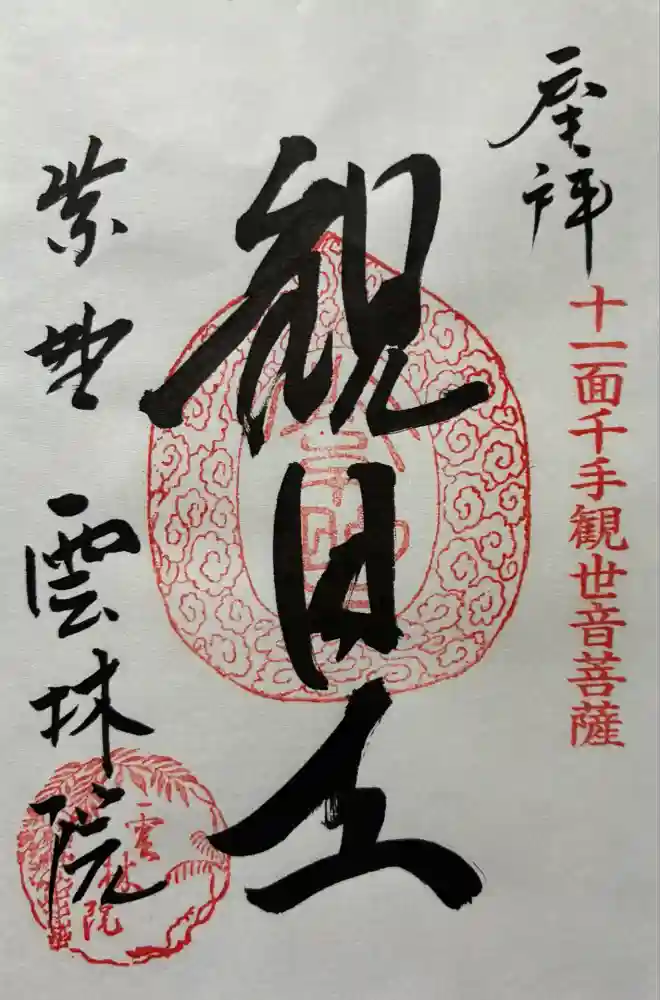 奉拝
十一面千手観世音菩薩
観自在
紫野 雲林院
雲林院